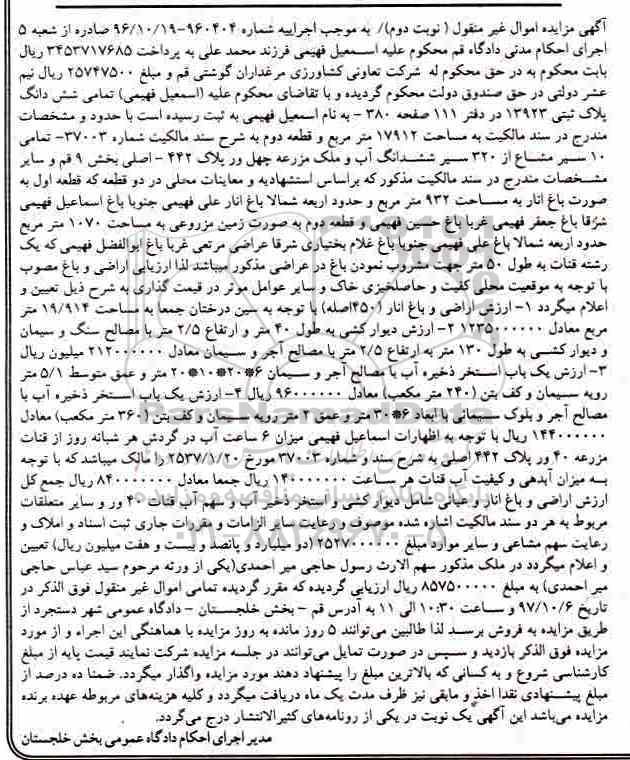 آگهی مزایده اموال غیر منقول ( نوبت دوم)/ به موجب اجراییه شماره ۹۶۰۴۰۴-۹۶/۱۰/۱۹ صادره از شعبه ۵
اجرای احکام مدنی دادگاه قم محکوم علیه اسمعیل فهیمی فرزند محمد علی به پرداخت ۳۴۵۳۷۱۷۶۸۵ ریال
بابت محکوم به در حق محکوم له شرکت تعاونی کشاورزی مرغداران گوشتی قم و مبلغ ۲۵۷۴۷۵۰۰ ریال نیم
عشر دولتی در حق صندوق دولت محکوم گردیده و با تقاضای محکوم علیه (اسمعیل فهیمی) تمامی شش دانگ
پلاک ثبتی ۱۳۹۲۳ در دفتر ۱۱۱ صفحه ۳۸۰ - به نام اسمعیل فهیمی به ثبت رسیده است با حدود و مشخصات
مندرج در سند مالکیت به مساحت ۱۷۹۱۲ متر مربع و قطعه دوم به شرح سند مالکیت شماره ۳۷۰۰۳- تمامی
۱۰ سیر مشاع از ۳۲۰ سیر ششدانگ آب و ملک مزرعه چهل ور پلاک ۴۴۲ - اصلی بخش ۹ قم و سایر
مشخصات مندرج در سند مالکیت مذکور که براساس استشهادیه و معاینات محلی در دو قطعه که قطعه اول به
صورت باغ انار به مساحت ۹۳۲ متر مربع و حدود اربعه شمالا باغ انار علی فهیمی جنوبا باغ اسماعیل فهیمی
شرقا باغ جعفر فهیمی غربا باغ حسین فهیمی و قطعه دوم به صورت زمین مزروعی به مساحت ۱۰۷۰ متر مربع
حدود اربعه شمالا باغ علی فهیمی جنوبا باغ غلام بختیاری شرقا عراضی مرتعی غربا باغ ابوالفضل فهیمی که یک
رشته قنات به طول ۵۰ متر جهت مشروب نمودن باغ در عراضی مذکور میباشد لذا ارزیابی اراضی و باغ مصوب
با توجه به موقعیت محلی کفیت و حاصلخیزی خاک و سایر عوامل موثر در قیمت گذاری به شرح ذیل تعیین و
اعلام میگردد ۱- ارزش اراضی و باغ انار (۴۵۰اصله) با توجه به سن درختان جمعا به مساحت ۱۹/۹۱۴ متر
مربع معادل ۱۲۳۵۰۰۰۰۰۰ ۲- ارزش دیوار کشی به طول ۴۰ متر و ارتفاع ۲/۵ متر با مصالح سنگ و سیمان
و دیوار کشی به طول ۱۳۰ متر به ارتفاع ۲/۵ متر با مصالح آجر و سیمان معادل ۲۱۲۰۰۰۰۰۰ میلیون ریال
۳- ارزش یک باب استخر ذخیره آب با مصالح آجر و سیمان ۶*۲۰*۱۰*۲۰ متر و عمق متوسط ۵/۱ متر
رویه سیمان و کف بتن (۲۴۰ متر مکعب) معادل ۹۶۰۰۰۰۰۰ ریال ۴- ارزش یک باب استخر ذخیره آب با
مصالح آجر و بلوک سیمانی با ابعاد ۶*۳۰ متر و عمق ۲ متر رویه سیمان و کف بتن (۳۶۰ متر مکعب) معادل
۱۴۴۰۰۰۰۰۰ ریال با توجه به اظهارات اسماعیل فهیمی میزان ۶ ساعت آب در گردش هر شبانه روز از قنات
مزرعه ۴۰ ور پلاک ۴۴۲ اصلی به شرح سند و شماره ۳۷۰۰۳ مورخ ۲۵۳۷/۱/۲۰ را مالک میباشد که با توجه
به میزان آبدهی و کیفیت آب قنات هر ساعت ۱۴۰۰۰۰۰۰۰ ریال جمعا معادل ۸۴۰۰۰۰۰۰۰ ریال جمع کل
ارزش اراضی و باغ انار و عیانی شامل دیوار کشی و استخر ذخیر آب و سهم آب قنات ۴۰ ور و سایر متعلقات
مربوط به هر دو سند مالکیت اشاره شده موصوف و رعایت سایر الزامات و مقررات جاری ثبت اسناد و املاک و
رعایت سهم مشاعی و سایر موارد مبلغ ۲۵۲۷۰۰۰۰۰۰ (دو میلیارد و پانصد و بیست و هفت میلیون ریال) تعیین
و اعلام میگردد در ملک مذکور سهم الارث رسول حاجی میر احمدی(یکی از ورثه مرحوم سید عباس حاجی
میر احمدی) به مبلغ ۸۵۷۵۰۰۰۰۰ ریال ارزیابی گردیده که مقرر گردیده تمامی اموال غیر منقول فوق الذکر در
تاریخ ۹۷/۱۰/۶ و ساعت ۱۰:۳۰ الی ۱۱ به آدرس قم - بخش خلجستان - دادگاه عمومی شهر دستجرد از
طریق مزایده به فروش برسد لذا طالبین می‌توانند ۵ روز مانده به روز مزایده با هماهنگی این اجراء و از مورد
مزایده فوق الذکر بازدید و سپس در صورت تمایل می‌توانند در جلسه مزایده شرکت نمایند قیمت پایه از مبلغ
کارشناسی شروع و به کسانی که بالاترین مبلغ را پیشنهاد دهند مورد مزایده واگذار میگردد. ضمنا ده درصد از
مبلغ پیشنهادی نقدا اخذ و مابقی نیز ظرف مدت یک ماه دریافت میگردد و کلیه هزینه‌های مربوطه عهده برنده
مزایده می‌باشد این آگهی یک نوبت در یکی از رونامه‌های کثیرالانتشار درج می‌گردد.
مدیر اجرای احکام دادگاه عمومی بخش خلجستان